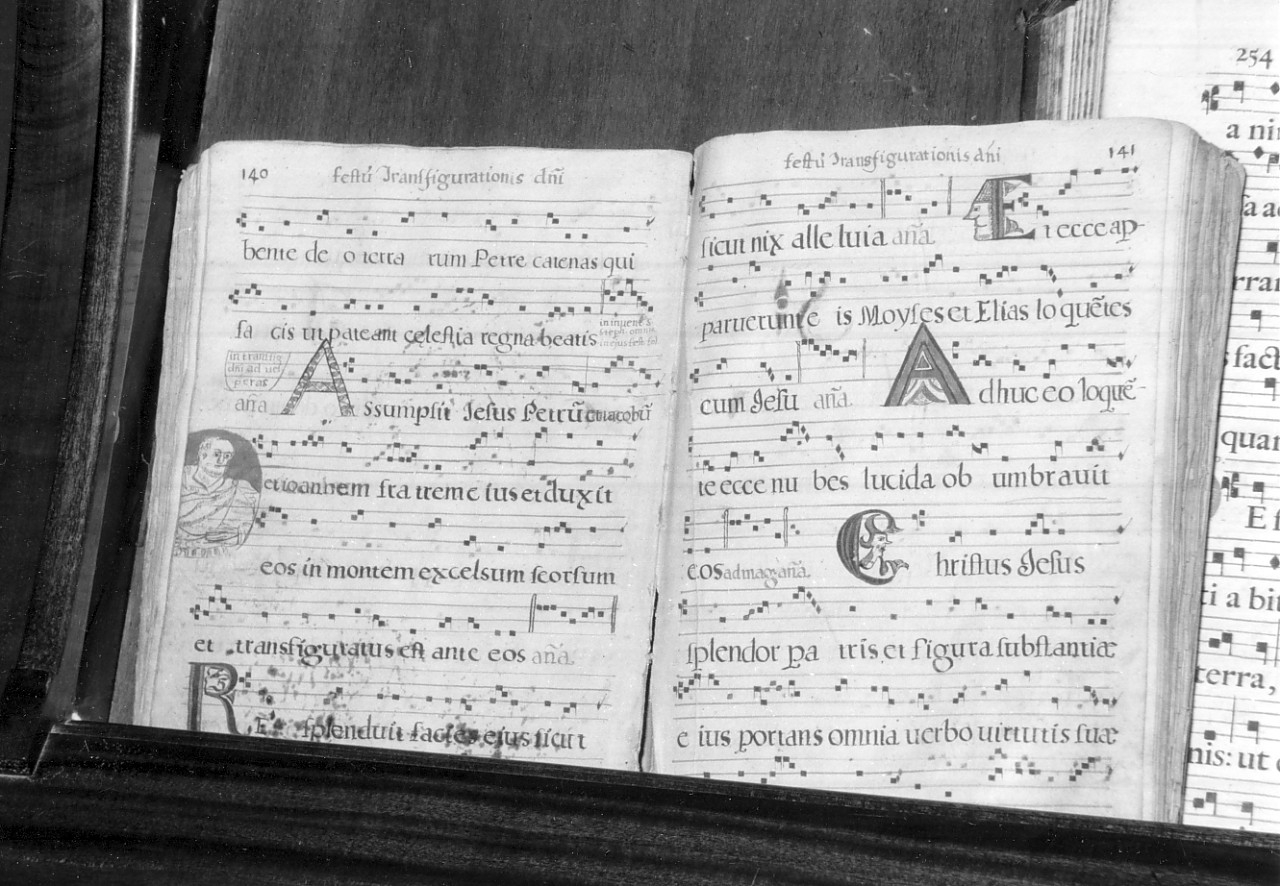 140 festũ Transfigurationis dñi
bente de o terra rum Petre catenas qui
fa cis ut pateant celestia regna beatis
in transfig
dñi ad ves
peras
aña Assumpsit Jesus Petrũ et iacobũ
et ioannem fra trem e ius et duxit
eos in montem excelsum seorsum
et transfiguratus est ante eos aña.
REsplenduit facies ejus sicut
festũ Transfigurationis dñi 141
sicut nix alle luia aña. Et ecce ap-
paruerunt e is Moyses et Elias lo quẽtes
cum Jesu aña. Adhuc eo loquẽ-
te ecce nu bes lucida ob umbravit
eos ad mag. aña. Christus Jesus
splendor pa tris et figura substantiæ
e ius portans omnia verbo virtutis suæ
254
a ni
terra,
nis: ut